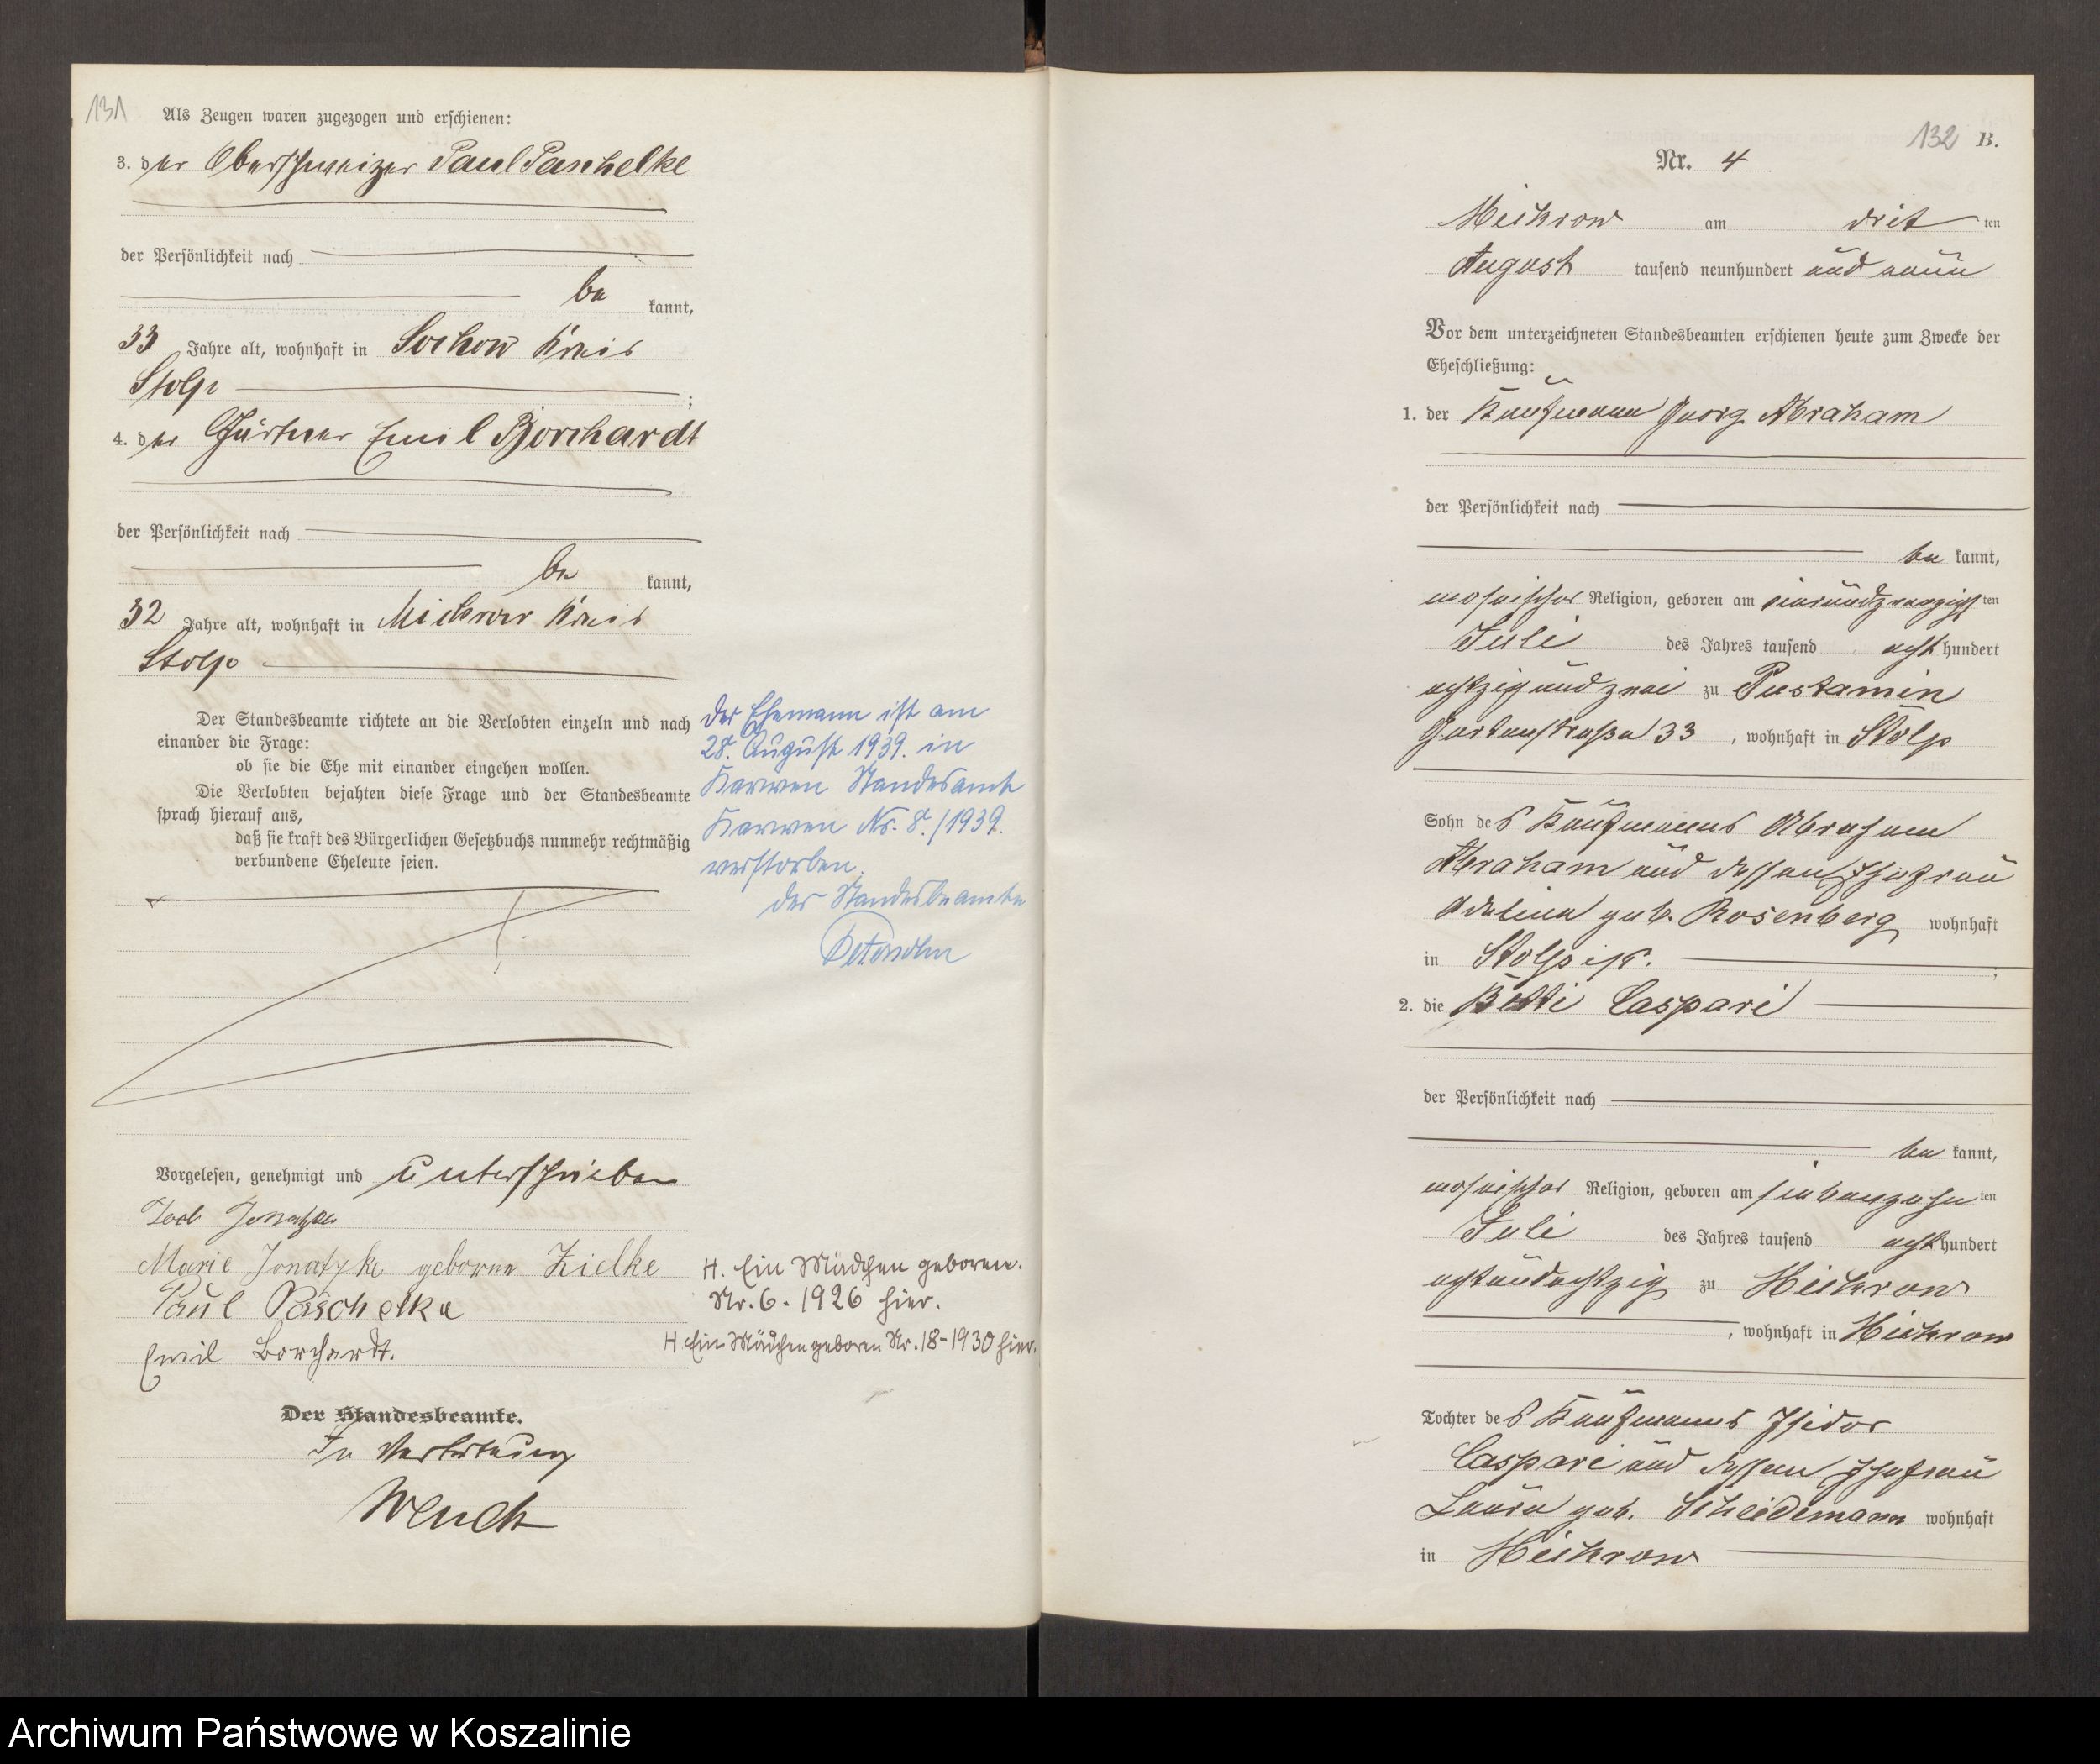 131
Als Zeugen waren zugezogen und erschienen:
3. der Oberschweizer Paul Paschelke
der Persönlichkeit nach
be kannt,
33 Jahre alt, wohnhaft in Lochow Kreis
Stolp ;
4. der Gärtner Emil Borchardt
der Persönlichkeit nach
be kannt,
32 Jahre alt, wohnhaft in Mickrow Kreis
Stolp
Der Standesbeamte richtete an die Verlobten einzeln und nach
einander die Frage:
ob sie die Ehe mit einander eingehen wollen.
Die Verlobten bejahten diese Frage und der Standesbeamte
sprach hierauf aus,
daß sie kraft des Bürgerlichen Gesetzbuchs nunmehr rechtmäßig
verbundene Eheleute seien.
Vorgelesen, genehmigt und unterschrieben
Jonatzke
Marie Jonatzke geborene Zielke
Paul Paschelke
Emil Borchardt.
Der Standesbeamte.
In Vertretung
Wendt
Der Ehemann ist am
28. August 1939. in
Karwen Standesamt
Karwen Nr. 8./1939.
verstorben.
Der Standesbeamte
H. Ein Mädchen geboren.
Nr. 6. 1926 hier.
H Ein Mädchen geboren Nr. 18-1930 hier.
132 B.
Nr. 4
Mickrow am drit ten
August tausend neunhundert und neun
Vor dem unterzeichneten Standesbeamten erschienen heute zum Zwecke der
Eheschließung:
1. der Kaufmann Georg Abraham
der Persönlichkeit nach
be kannt,
mosaischer Religion, geboren am einundzwanzigs ten
Juli des Jahres tausend acht hundert
achtzig und zwei zu Pustamin
Gartenstraße 33 , wohnhaft in Stolp
Sohn des Kaufmanns Abraham
Abraham und dessen Ehefrau
Adeline geb. Rosenberg wohnhaft
in Stolp ;
2. die Betti Caspari
der Persönlichkeit nach
be kannt,
mosaischer Religion, geboren am siebenzehn ten
Juli des Jahres tausend acht hundert
achtundachtzig zu Mickrow
, wohnhaft in Mickrow
Tochter des Kaufmanns Isidor
Caspari und dessen Ehefrau
Laura geb. Scheidemann wohnhaft
in Mickrow
Archiwum Państwowe w Koszalinie